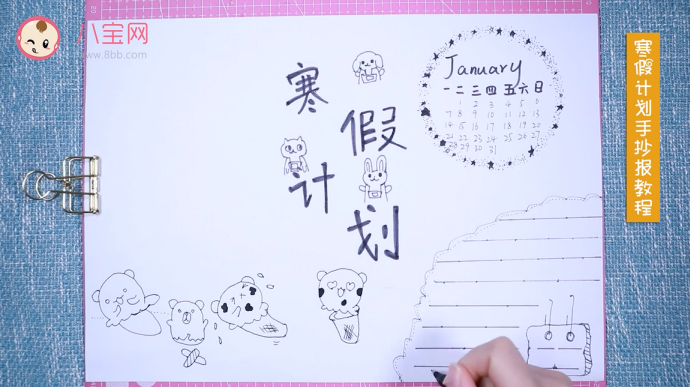 八宝网
www.8bb.com
寒假计划
January
一二三四五六日
1 2 3 4 5 6
7 8 9 10 11 12 13
14 15 16 17 18 19 20
21 22 23 24 25 26 27
28 29 30 31
寒假计划手抄报教程